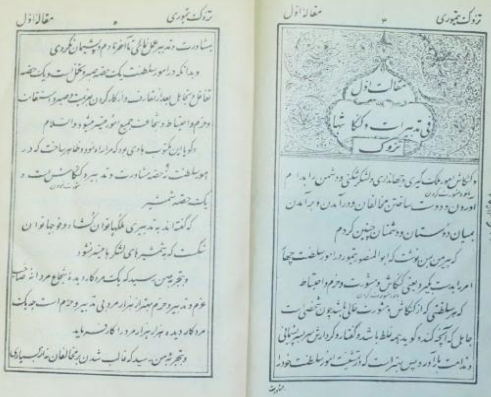 تزوک تیموری ۴ مقالهٔ اوّل
مقالت اوّل
در تدبیرات و کنگاشها
تزوک
کنگاش امور ملک‌گیری و جهانداری و لشکر شکنی و دشمن را بدام
آوردن و دوست ساختن مخالفان و در آمدن و بر آمدن
بمیان دوستان و دشمنان چنین کردم
که پیر من بمن نوشت که ابوالمنصور تیمور در امور سلطنت چهار
امر را بدست گیرد یعنی کنگاش و مشورت و حزم و احتیاط
که هر سلطنتی که از کنگاش و مشورت خالی باشد چون شخصی است
جاهل که آنچه کند و گوید همه غلط باشد و گفتار و کردارش سر بسر پشیمانی
و ندامت بار آورد پس بهتر است که در تمشیت امور سلطنت خود را
تزوک تیموری مقالهٔ اوّل
بمشاورت و تدبیر عمل نمائی تا آخر نادم و پشیمان نگردی
و بدانکه در امور سلطنت یک حصه صبر و تحمل است و یک حصه
تغافل و تجاهل بعد از تعارف
و حزم و احتیاط و شجاعت جمیع امور میسر میشود والسلام
و گویا این مکتوب هادی بود که مرا راه نمود و ظاهر ساخت که در
امور سلطنت نه حصه مشاورت و تدبیر و کنگاش است و
یک حصه شمشیر
که گفته‌اند به تدبیری ملکها توان گشاد و فوجها توان
شکست که بشمشیرهای لشکرها میسر نشود
و بتجربه من رسید که یک مرد کار دیده شجاع مردانه صاحب
عزم و تدبیر و حزم بهتر از هزار مرد بی تدبیر و حزم است چه یک
مرد کار دیده هزار هزار مرد را کار فرماید
و بتجربه من رسید که غالب شدن بر مخالفان نه از بسیاری